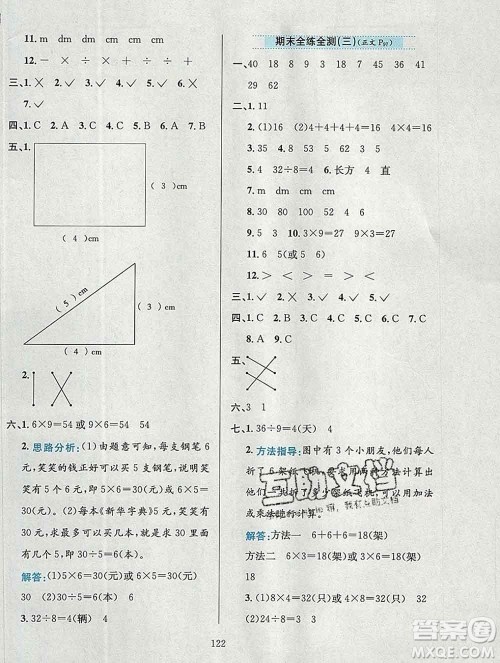 11. m dm cm m dm
12. － ÷ × ÷ + ÷
三、1. ✓ 2. × 3. × 4. ✓ 5. ✓
四、1. C 2. A 3. C 4. C 5. A
五、1.
(3)cm
(4)cm
(5)cm
(3)cm
(4)cm
2.
六、1. 6×9=54 或 9×6=54 54
2. 思路分析：(1)由题意可知，每支钢笔5元，笑笑的钱正好可以买5支钢笔，说明笑笑有5×6=30(元)或6×5=30(元)；(2)每本《新华字典》5元，笑笑可以买30÷5=6(本)。
解答：(1)5×6=30(元)或6×5=30(元)
30 (2)30÷5=6(本) 6
3. 32÷8=4(辆) 4
122
期末全练全测(三)(正文 P97)
一、40 18 8 9 7 45 36 41
29 62
二、1. 11
2. (1)16 (2)4+4+4+4=16 4×4=16
3. 35 4. 58 5. 15 9 15 6. 4
32÷8=4 7. m dm cm
8. 30 80 100 52 6 长方 4 直
9. 5 3 10. 3×9=27 9×3=27
11. 6 5(或5 6)
12. > < > <
三、1. ✓ 2. ✓ 3. × 4. ✓ 5. ✓
四、1. C 2. B 3. C 4. A 5. C 6. B
7. A 8. B 9. C
五、
六、3 1
七、1. 36÷9=4(天) 4
2. 方法指导：图中有3个小朋友，他们每人
解答：方法一 6+6+6=18(架)
方法二 6×3=18(架) 3×6=18(架)
18
3. (1)4×8=32(只)或8×4=32(只)
32 (2)32÷8=4(只) 4
互助文档
MXQE.COM